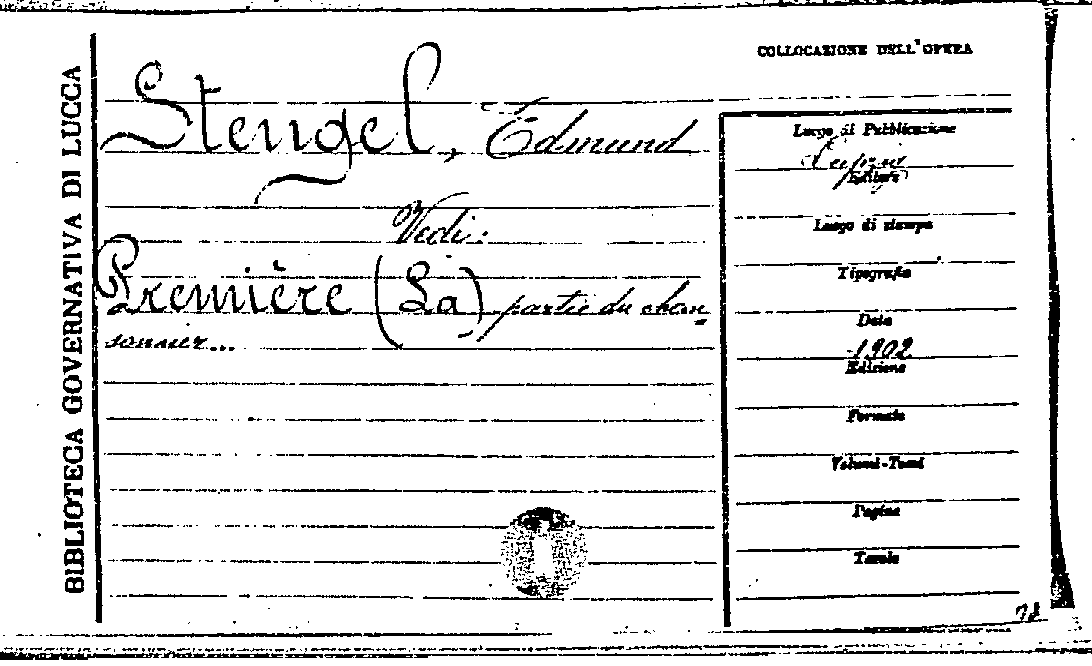 BIBLIOTECA GOVERNATIVA DI LUCCA
Stengel, Edmund
Vedi:
Première (La) partie du chan-
sonnier...
COLLOCAZIONE DELL'OPERA
Luogo di Pubblicazione
Editore
Luogo di stampa
Tipografia
Data
1902
Edizione
Formato
Volumi-Tomi
Pagine
Tavole